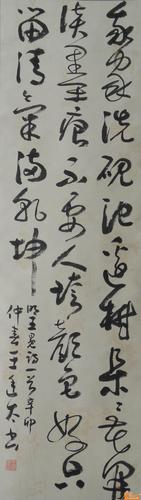 我家洗硯池邊樹朵々花開
淡墨痕不要人誇顏色好只
留清氣滿乾坤
王冕詩一首辛卯
仲春王書